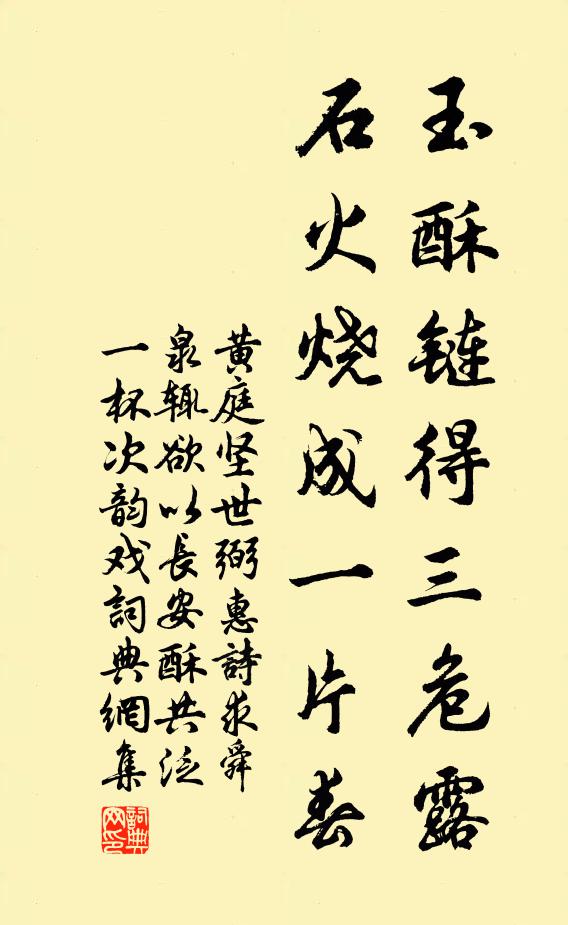 玉酥鏈得三危露
石火烧成一片春
黄庭坚世弼惠詩求舜
泉辄欲以長安酥共泛
一杯次韵戏詞典網集
詞典
网印